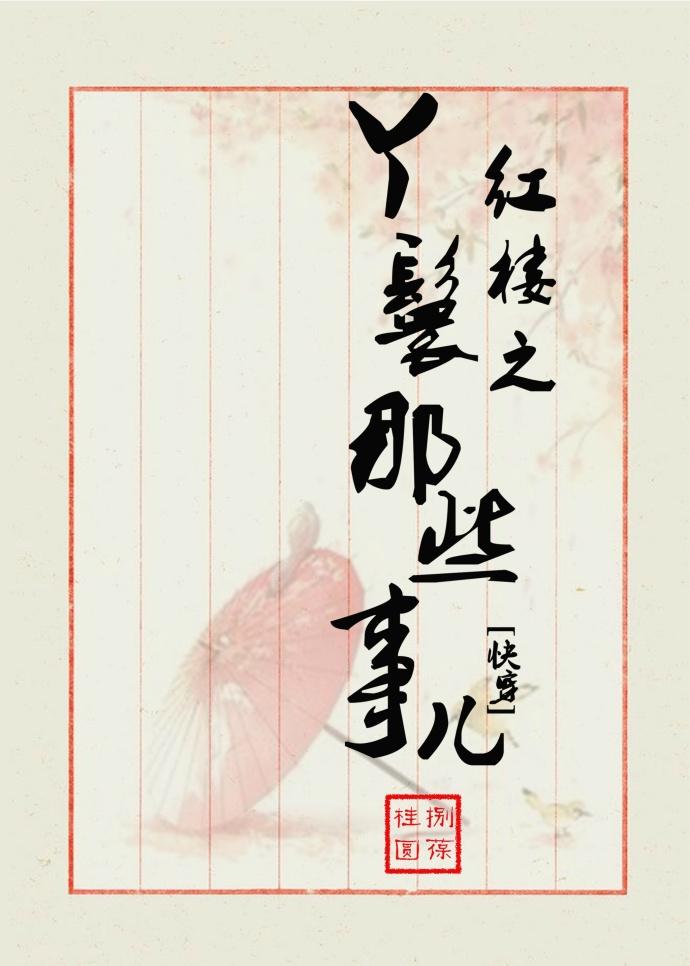 红楼之
丫鬟那些事儿
[快穿]
捌葆
桂圆